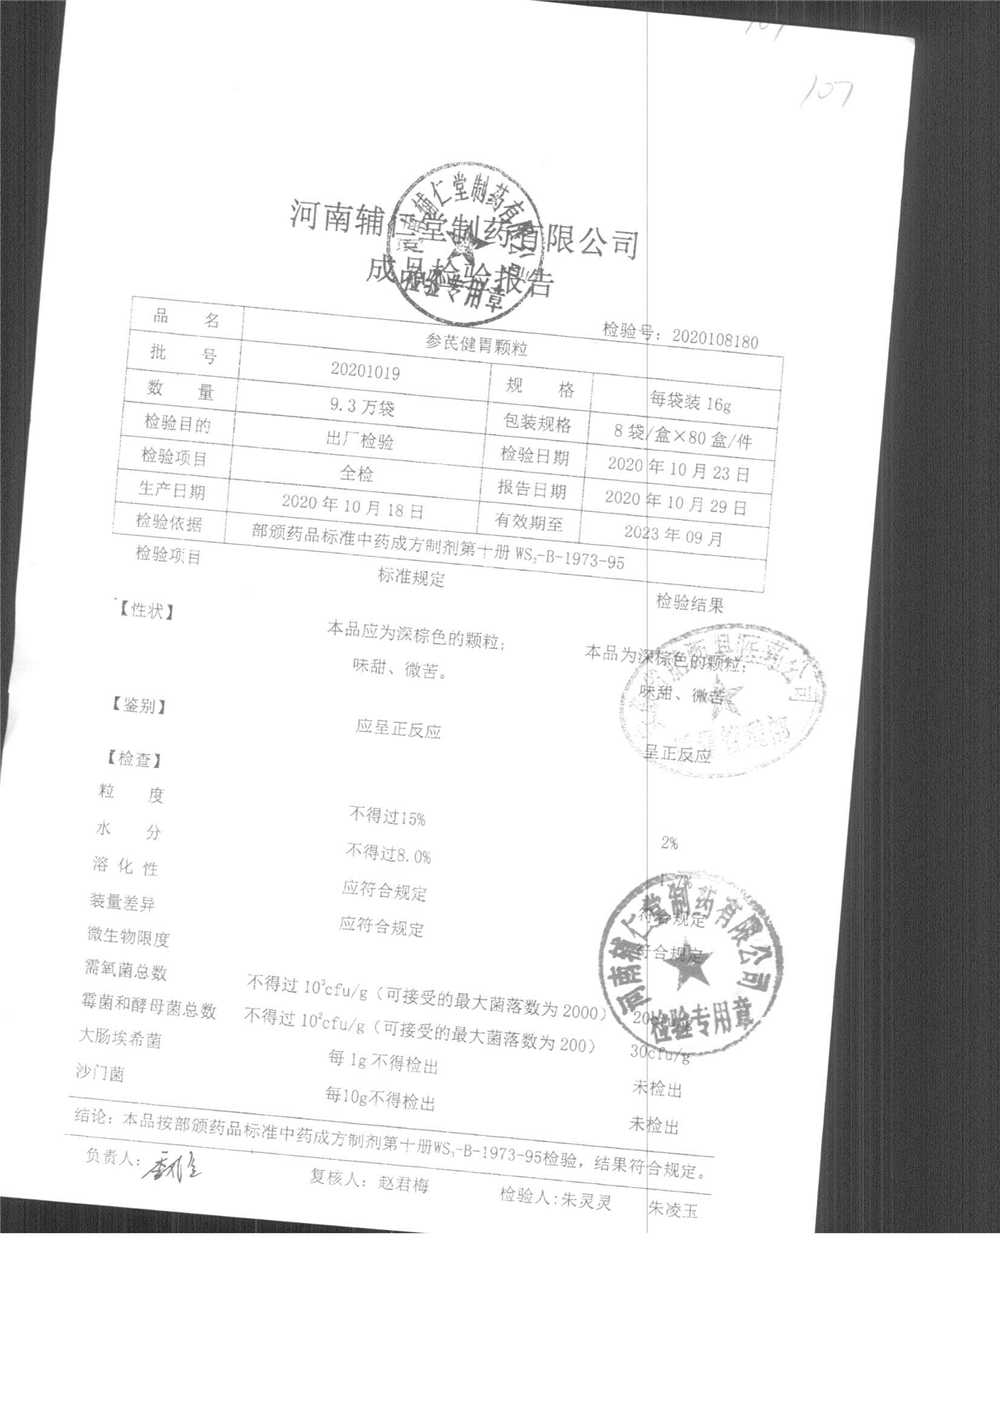 107
河南辅仁堂制药有限公司
成品检验报告
检验号：2020108180
品名 参芪健胃颗粒
批号 20201019 规格 每袋装16g
数量 9.3万袋 包装规格 8袋/盒×80盒/件
检验目的 出厂检验 检验日期 2020年10月23日
检验项目 全检 报告日期 2020年10月29日
生产日期 2020年10月18日 有效期至 2023年09月
检验依据 部颁药品标准中药成方制剂第十册WS3-B-1973-95
检验项目 标准规定 检验结果
【性状】 本品应为深棕色的颗粒； 本品为深棕色的颗粒；
味甜、微苦。 味甜、微苦。
【鉴别】 应呈正反应 呈正反应
【检查】
粒度 不得过15% 2%
水分 不得过8.0%
溶化性 应符合规定 符合规定
装量差异 应符合规定 符合规定
微生物限度
需氧菌总数 不得过10³cfu/g（可接受的最大菌落数为2000）
霉菌和酵母菌总数 不得过10²cfu/g（可接受的最大菌落数为200） 30cfu/g
大肠埃希菌 每1g不得检出 未检出
沙门菌 每10g不得检出 未检出
结论：本品按部颁药品标准中药成方制剂第十册WS3-B-1973-95检验，结果符合规定。
负责人： 复核人：赵君梅 检验人：朱灵灵 朱凌玉
河南辅仁堂制药有限公司
检验专用章
河南辅仁堂制药有限公司
检验专用章